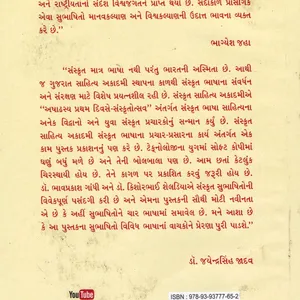 અને રાષ્ટ્રીયતાનો સંદેશ વિશ્વજગતને પ્રાપ્ત થયો છે. સદાકાળ પ્રાસંગિક
એવા સુભાષિતો માનવકલ્યાણ અને વિશ્વકલ્યાણની ઉદાત્ત ભાવના વ્યક્ત
કરે છે.''
ભાગ્યેશ જહા
''સંસ્કૃત માત્ર ભાષા નથી પરંતુ ભારતની અસ્મિતા છે. આથી
જ ગુજરાત સાહિત્ય અકાદમી સ્થાપના કાળથી સંસ્કૃત ભાષાના સંવર્ધન
અને સંરક્ષણ માટે વિશેષ પ્રયત્નશીલ રહી છે. સંસ્કૃત સાહિત્ય અકાદમીએ
''અષાઢસ્ય પ્રથમ દિવસે-સંસ્કૃતોત્સવ'' અંતર્ગત સંસ્કૃત ભાષા સાહિત્યના
અનેક વિદ્વાનો અને યુવા સંસ્કૃત પ્રચારકોનું સન્માન કર્યું છે. સંસ્કૃત
સાહિત્ય અકાદમી સંસ્કૃત ભાષાના પ્રચાર-પ્રસારના કાર્ય અંતર્ગત એક
કામ પુસ્તક પ્રકાશનનું પણ કરે છે. ટેક્નોલોજીના યુગમાં સોફ્ટ કોપીમાં
ઘણું બધું મળે છે અને તેની બોલબાલા પણ છે. આમ છતાં કેટલુંક
ચિરસ્થાયી હોય છે. તેને કાગળ પર પ્રકાશિત કરવું જરૂરી હોય છે.
ડૉ. ભાવપ્રકાશ ગાંધી અને ડૉ. કિશોરભાઈ શેલડિયાએ સંસ્કૃત સુભાષિતોની
વિવેકપૂર્ણ પસંદગી કરી છે અને એમના પુસ્તકની સૌથી મોટી નવીનતા
એ છે કે અહીં સુભાષિતોને ચાર ભાષામાં સમાવેલ છે. મને આશા છે
કે આ પુસ્તકના સુભાષિતો વિવિધ ભાષાનાં વાચકોને પ્રેરણા પુરી પાડશે.''
ડૉ. જયેન્દ્રસિંહ જાદવ
YouTube
ISBN : 978-93-93777-65-2